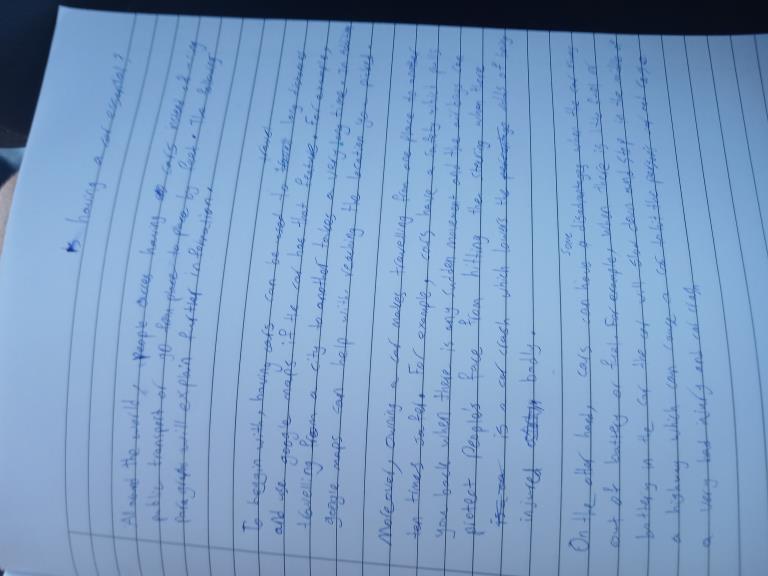 Is having a car essential?
Around the world, people having cars instead of using
public transport or go from place to place by foot. The following
paragraph will explain further information.
To begin with, having cars can be used to travel long
and use google maps if the car has that feature. For example,
travelling from a city to another takes a very long time so
google maps can help with reaching the location you picked.
Moreover, owning a car makes travelling from one place to another
ten times safer. For example, cars have a safety which pulls
you back when there is any sudden movement and the airbags can
protect people's face from hitting the steering when there
is a car crash which lowers the of being
injured badly.
On the other hand, some cars can have a disadvantage when the car
out of battery or fuel. For example, when there is low fuel or
battery in the car the car will slow down and stop in the middle of
a highway which can cause a car to hit the
a very bad injury and car crash